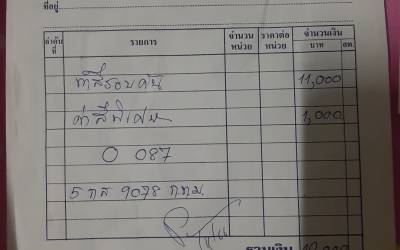 ที่อยู่
ลำดับที่ รายการ จำนวนหน่วย ราคาต่อหน่วย จำนวนเงิน
บาท สต.
ทำสีรอบคัน 11,000
ค่าสีพิเศษ 1,000
0 087
5 กส 9078 กทม.
รวมเงิน